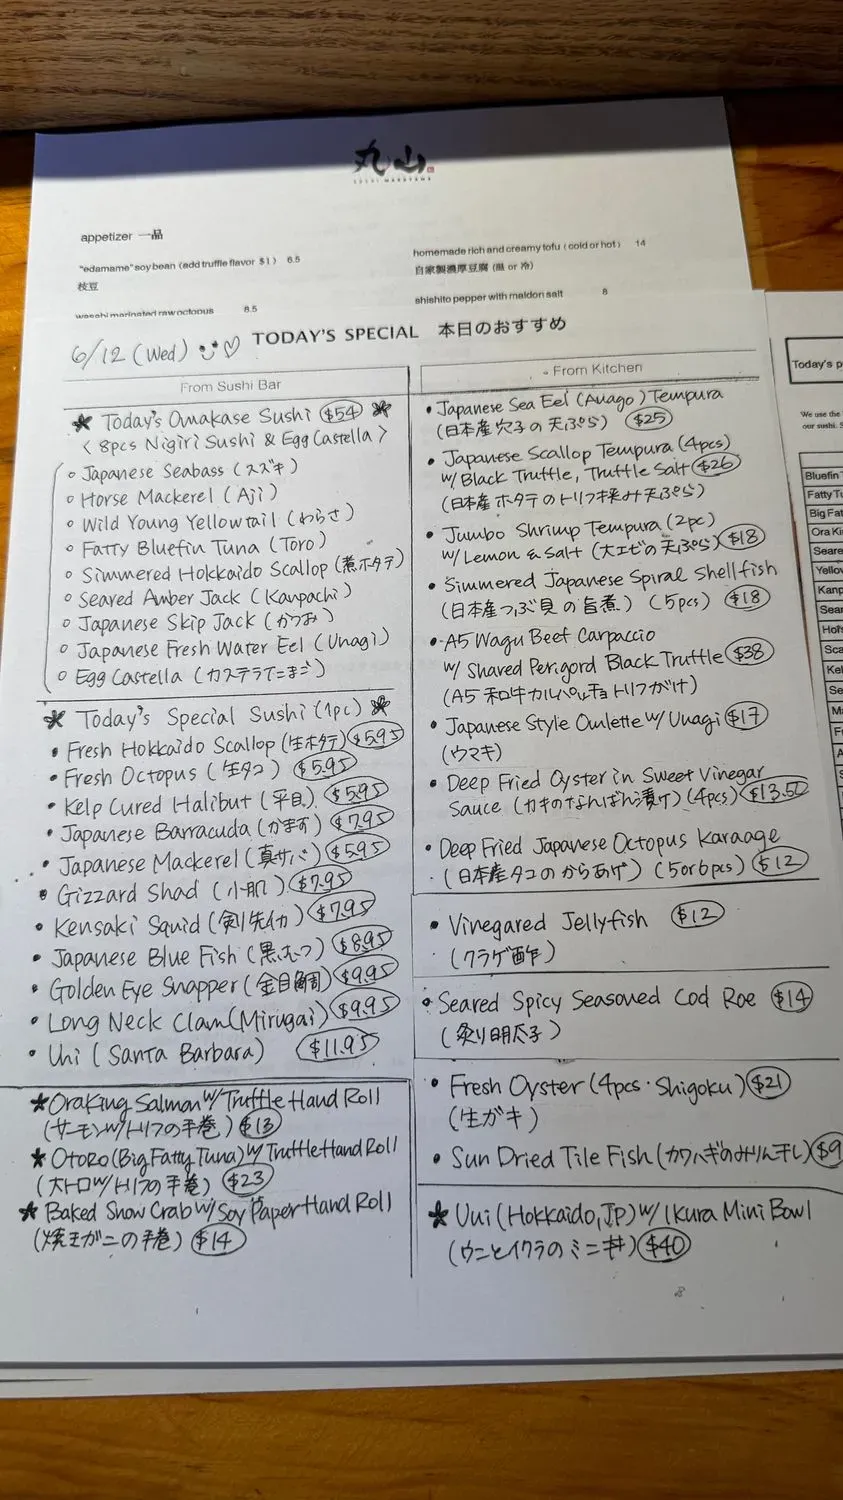 丸山
SUSHI MARUYAMA
appetizer 一品
"edamame" soy bean (add truffle flavor $1) 6.5
枝豆
wasabi marinated raw octopus 8.5
homemade rich and creamy tofu (cold or hot) 14
自家製濃厚豆腐 (温 or 冷)
shishito pepper with maldon salt 8
6/12 (Wed)
TODAY'S SPECIAL 本日のおすすめ
From Sushi Bar
Today's Omakase Sushi $54
< 8pcs Nigiri Sushi & Egg Castella >
Japanese Seabass (スズキ)
Horse Mackerel (Aji)
Wild Young Yellowtail (わらさ)
Fatty Bluefin Tuna (Toro)
Simmered Hokkaido Scallop (煮ホタテ)
Seared Amber Jack (Kanpachi)
Japanese Skip Jack (かつお)
Japanese Fresh Water Eel (Unagi)
Egg Castella (カステラたまご)
Today's Special Sushi (1pc)
Fresh Hokkaido Scallop (生ホタテ) $5.95
Fresh Octopus (生タコ) $5.95
Kelp Cured Halibut (平目) $5.95
Japanese Barracuda (かます) $7.95
Japanese Mackerel (真サバ) $5.95
Gizzard Shad (小肌) $7.95
Kensaki Squid (剣先イカ) $7.95
Japanese Blue Fish (黒むつ) $8.95
Golden Eye Snapper (金目鯛) $9.95
Long Neck Clam (Mirugai) $9.95
Uni (Santa Barbara) $11.95
OraKing Salmon w/ Truffle Hand Roll
(サーモンw/トリフの手巻) $13
Otoro (Big Fatty Tuna) w/ Truffle Hand Roll
(大トロw/トリフの手巻) $23
Baked Snow Crab w/ Soy Paper Hand Roll
(焼きガニの手巻) $14
From Kitchen
Japanese Sea Eel (Anago) Tempura
(日本産穴子の天ぷら) $25
Japanese Scallop Tempura (4pcs)
w/ Black Truffle, Truffle Salt $26
(日本産ホタテのトリフ挟み天ぷら)
Jumbo Shrimp Tempura (2pc)
w/ Lemon & Salt (大エビの天ぷら) $18
Simmered Japanese Spiral Shellfish
(日本産つぶ貝の旨煮) (5pcs) $18
A5 Wagu Beef Carpaccio
w/ Shaved Perigord Black Truffle $38
(A5 和牛カルパッチョトリフがけ)
Japanese Style Omlette w/ Unagi $17
(ウマキ)
Deep Fried Oyster in Sweet Vinegar
Sauce (カキのなんばん漬け) (4pcs) $13.50
Deep Fried Japanese Octopus Karaage
(日本産タコのからあげ) (5or6pcs) $12
Vinegared Jellyfish $12
(クラゲ酢)
Seared Spicy Seasoned Cod Roe $14
(炙り明太子)
Fresh Oyster (4pcs・Shigoku) $21
(生ガキ)
Sun Dried Tile Fish (カワハギのみりん干し) $9
Uni (Hokkaido, JP) w/ Ikura Mini Bowl
(ウニとイクラのミニ丼) $40
Today's p
We use the
our sushi. S
Bluefin
Fatty Tu
Big Fat
Ora Ki
Seare
Yellow
Kanp
Sear
Hot
Sca
Kel
Se
M
F
A